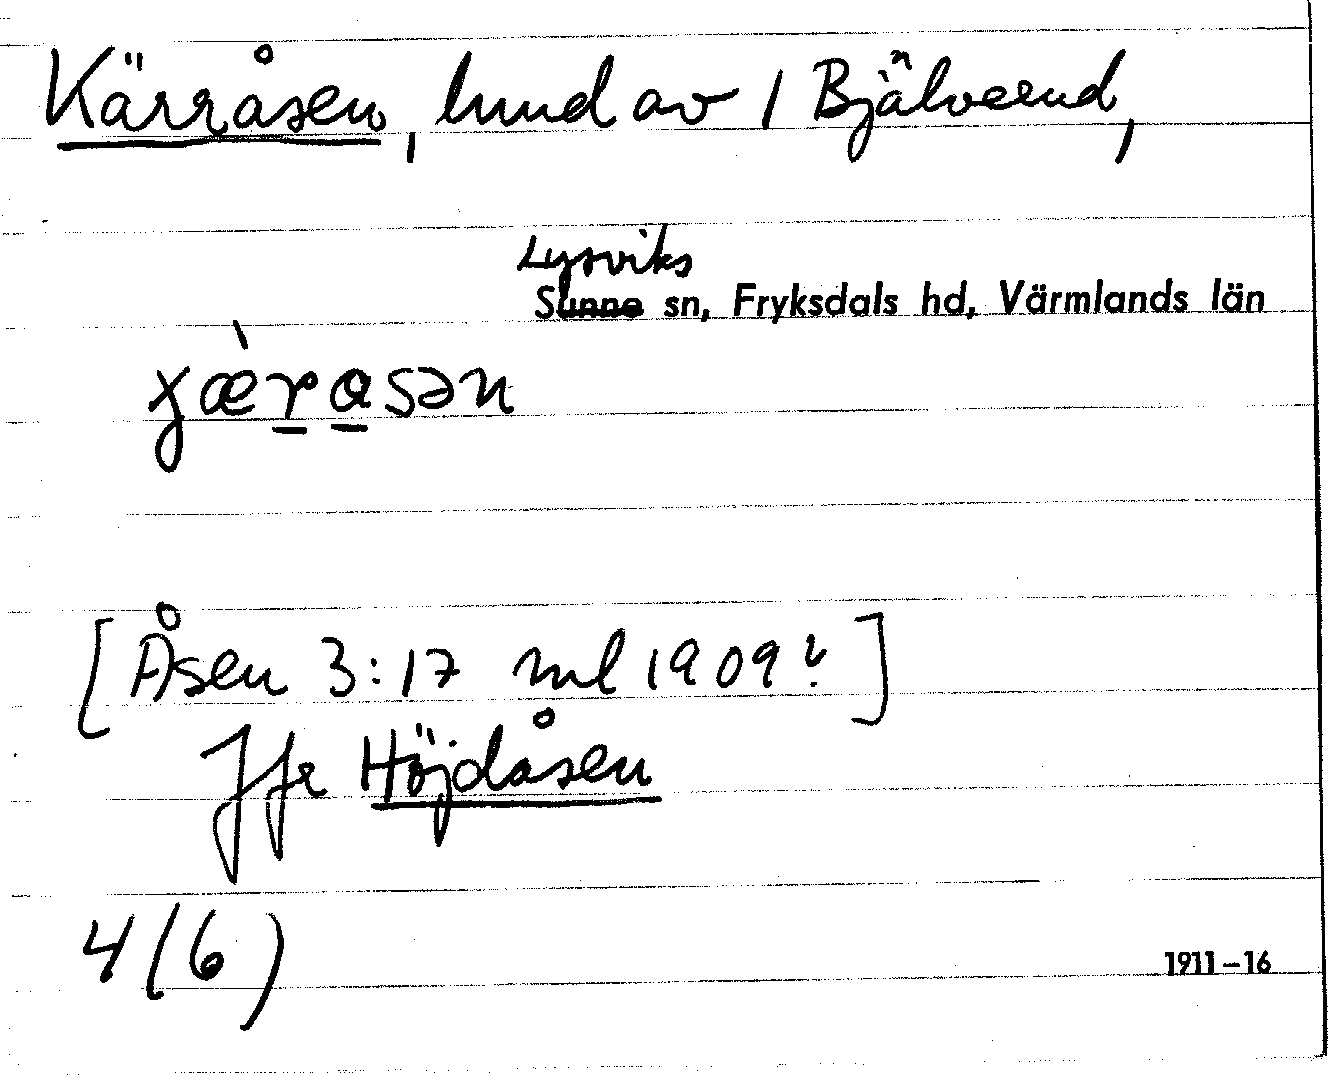 Kärråsen, lund av 1 Bjälverud,
Lysviks
Sunne sn, Fryksdals hd, Värmlands län
χæ̀r̲a̲sən
[Åsen 3:17 ml 1909?]
Jfr Höjdåsen
4(6)
1911–16